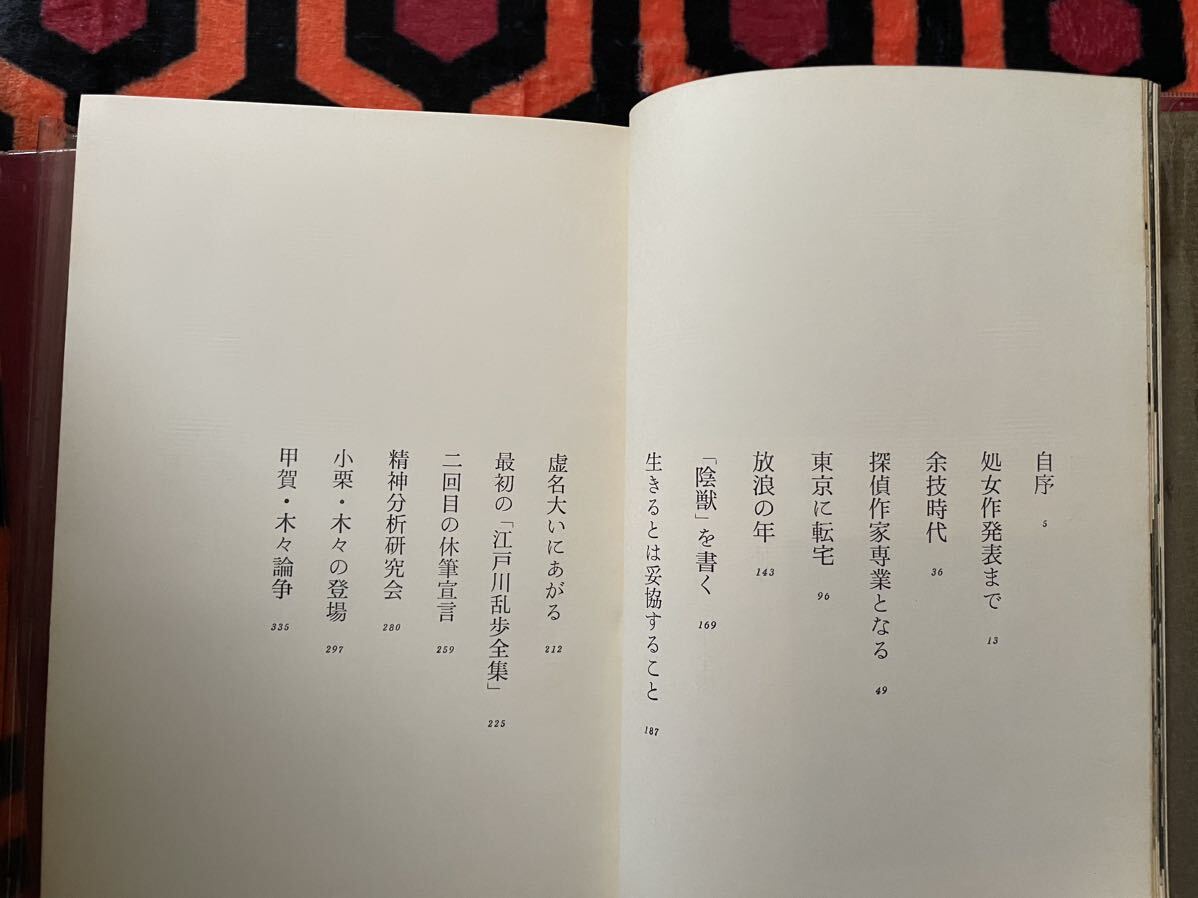 自序 5
処女作発表まで 13
余技時代 36
探偵作家専業となる 49
東京に転宅 96
放浪の年 143
「陰獣」を書く 169
生きるとは妥協すること 187
虚名大いにあがる 212
最初の「江戸川乱歩全集」 225
二回目の休筆宣言 259
精神分析研究会 280
小栗・木々の登場 297
甲賀・木々論争 335